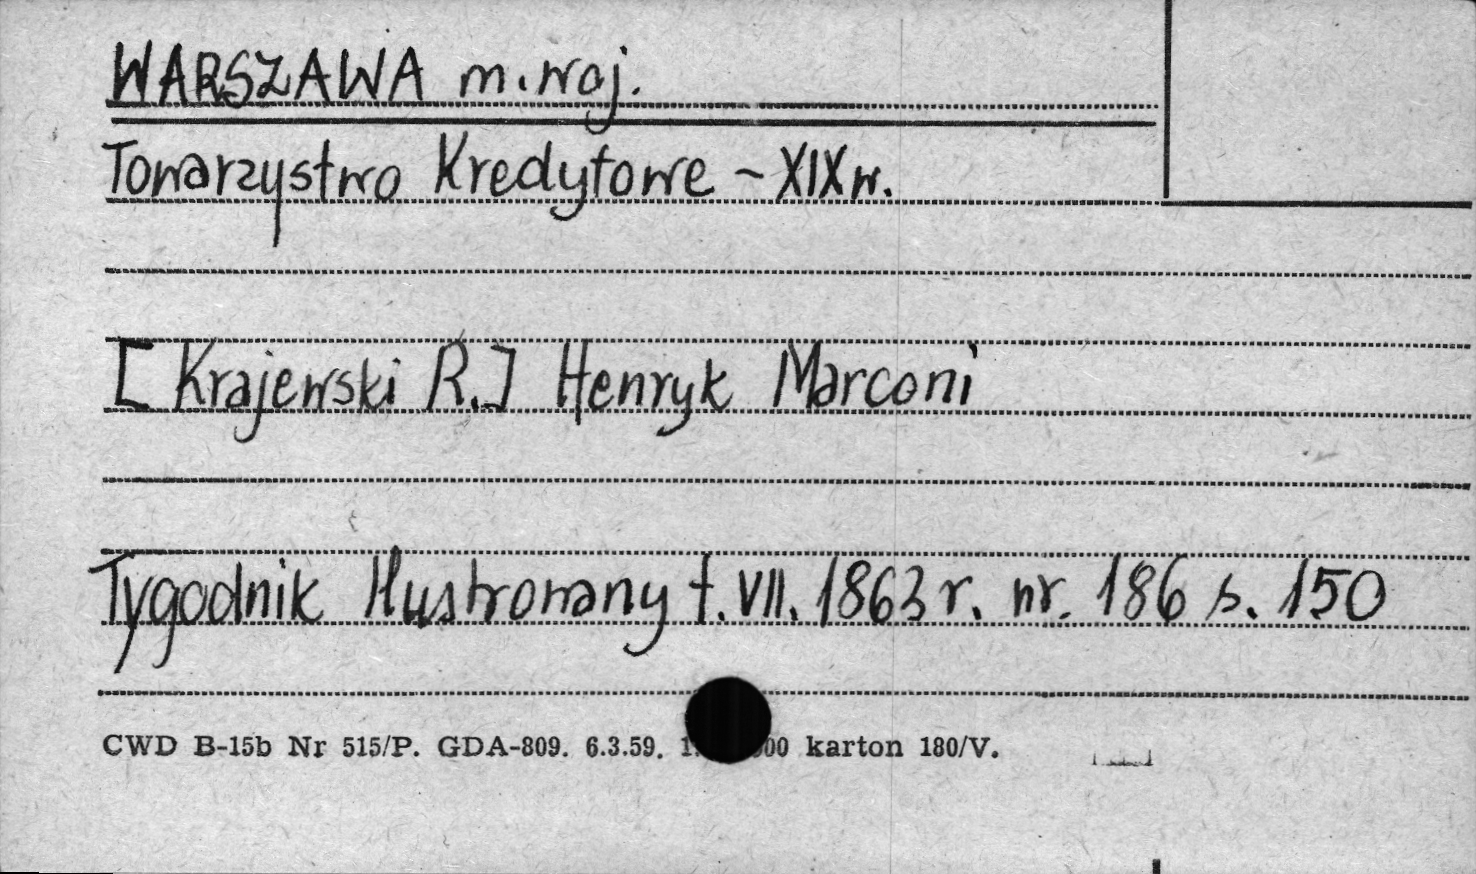 WARSZAWA m. woj.
Towarzystwo Kredytowe - XIX w.
[Krajewski R.] Henryk Marconi
Tygodnik Ilustrowany t. VII. 1863 r. nr. 186 s. 150
CWD B-15b Nr 515/P. GDA-809. 6.3.59. karton 180/V.